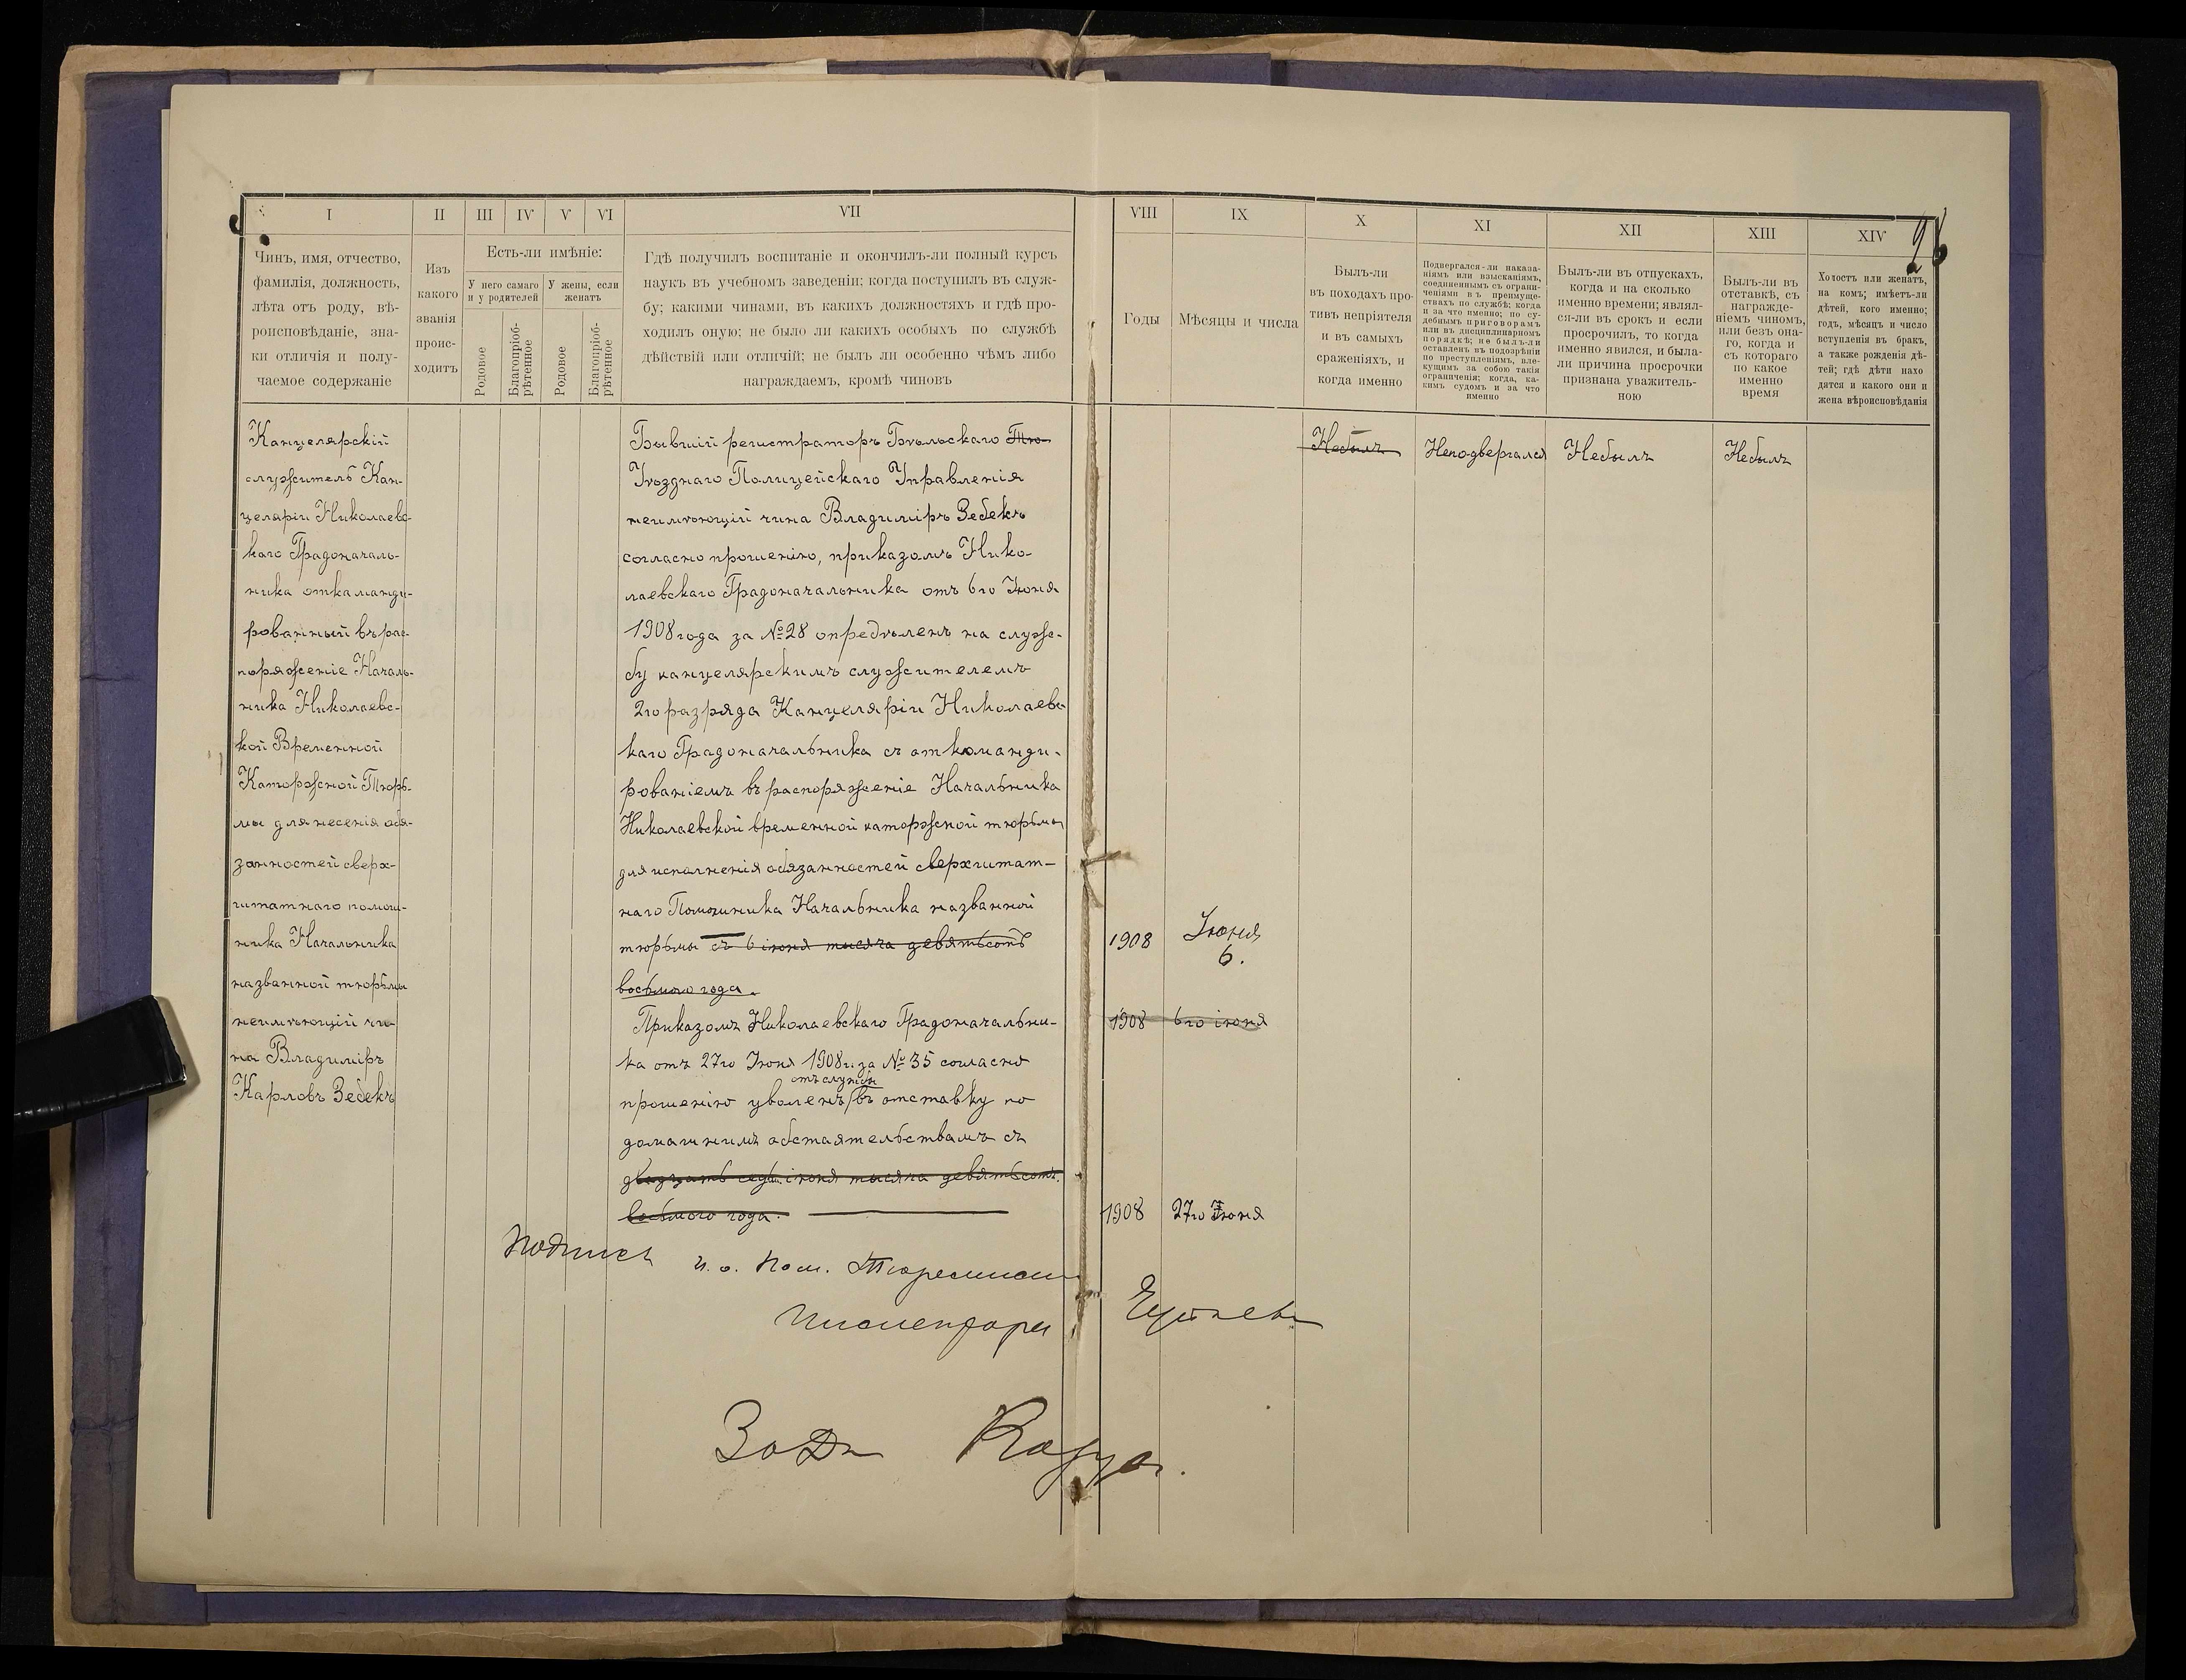 26
I II III IV V VI VII VIII IX X XI XII XIII XIV
Чинъ, имя, отчество,
фамилія, должность,
лѣта отъ роду, вѣ-
роисповѣданіе, зна-
ки отличія и полу-
чаемое содержаніе
Изъ
какого
званія
проис-
ходитъ
Есть-ли имѣніе:
У него самаго
и у родителей
У жены, если
женатъ
Родовое
Благопріоб-
рѣтенное
Родовое
Благопріоб-
рѣтенное
Гдѣ получилъ воспитаніе и окончилъ-ли полный курсъ
наукъ въ учебномъ заведеніи; когда поступилъ въ служ-
бу; какими чинами, въ какихъ должностяхъ и гдѣ про-
ходилъ оную; не было ли какихъ особыхъ по службѣ
дѣйствій или отличій; не былъ ли особенно чѣмъ либо
награждаемъ, кромѣ чиновъ
Годы
Мѣсяцы и числа
Былъ-ли
въ походахъ про-
тивъ непріятеля
и въ самыхъ
сраженіяхъ, и
когда именно
Подвергался-ли наказа-
ніямъ или взысканіямъ,
соединеннымъ съ ограни-
ченіями въ преимуще-
ствахъ по службѣ; когда
и за что именно; по су-
дебнымъ приговорамъ
или въ дисциплинарномъ
порядкѣ; не былъ-ли
оставленъ въ подозрѣніи
по преступленіямъ, вле-
кущимъ за собою такія
ограниченія; когда, ка-
кимъ судомъ и за что
именно
Былъ-ли въ отпускахъ,
когда и на сколько
именно времени; являл-
ся-ли въ срокъ и если
просрочилъ, то когда
именно явился, и была-
ли причина просрочки
признана уважитель-
ною
Былъ-ли въ
отставкѣ, съ
награжде-
ніемъ чиномъ,
или безъ она-
го, когда и
съ котораго
по какое
именно
время
Холостъ или женатъ,
на комъ; имѣетъ-ли
дѣтей, кого именно;
годъ, мѣсяцъ и число
вступленія въ бракъ,
а также рожденія дѣ-
тей; гдѣ дѣти нахо
дятся и какого они и
жена вѣроисповѣданія
Канцелярскій
служитель Кан-
целяріи Николаевс-
каго Градоначаль-
ника откаманди-
рованный въ рас-
поряженіе Началь-
ника Николаевс-
кой Временной
Каторжной Тюрь-
мы для несенія обя-
занностей сверх-
штатнаго помощ-
ника Начальника
названной тюрьмы
неимѣющій чи-
на Владиміръ
Карловъ Зебекъ
Бывшій регистраторъ Бѣльскаго Тю-
Уѣзднаго Полицейскаго Управленія
неимѣющій чина Владиміръ Зебекъ
согласно прошенію, приказомъ Нико-
лаевскаго Градоначальника отъ 6го Іюня
1908 года за № 28 опредѣленъ на служ-
бу канцелярскимъ служителемъ
2го разряда Канцеляріи Николаевс-
каго Градоначальника съ откоманди-
рованіемъ въ распоряженіе Начальника
Николаевской временной каторжной тюрьмы
для исполненія обязанностей сверхштат-
наго Помощника Начальника названной
тюрьмы съ 6 іюня тысяча девятьсотъ
восьмого года.
Приказомъ Николаевскаго Градоначальни-
ка отъ 27го Іюня 1908 г. за № 35 согласно
отъ службы
прошенію уволенъ въ отставку по
домашнимъ обстаятельствамъ съ
двадцать седьм. іюня тысяча девятьсотъ.
восьмого года.
1908 Іюня
6.
1908 6го іюня
1908 27го Іюня
Небылъ
Неподвергался
Небылъ
Небылъ
Подписи
и. о. Пом. Тюремнаго